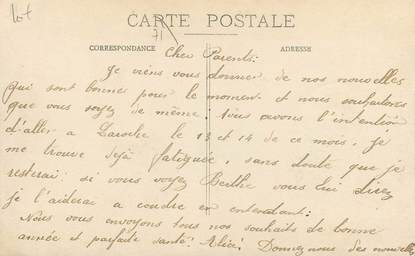 lot
CARTE POSTALE
71
CORRESPONDANCE
ADRESSE
Cher Parents:
Je viens vous donner de nos nouvelles
qui sont bonnes pour le moment et nous souhaitons
que vous soyez de même: Nous avons l'intention
d'aller a Laroche le 13 et 14 de ce mois, je
me trouve déjà fatiguée, sans doute que je
resterai: si vous voyez Berthe vous lui direz
je l'aiderai a coudre en entendant:
Nous vous envoyons tous nos souhaits de bonne
année et parfaite santé: Alice: Donnez nous des nouvelles